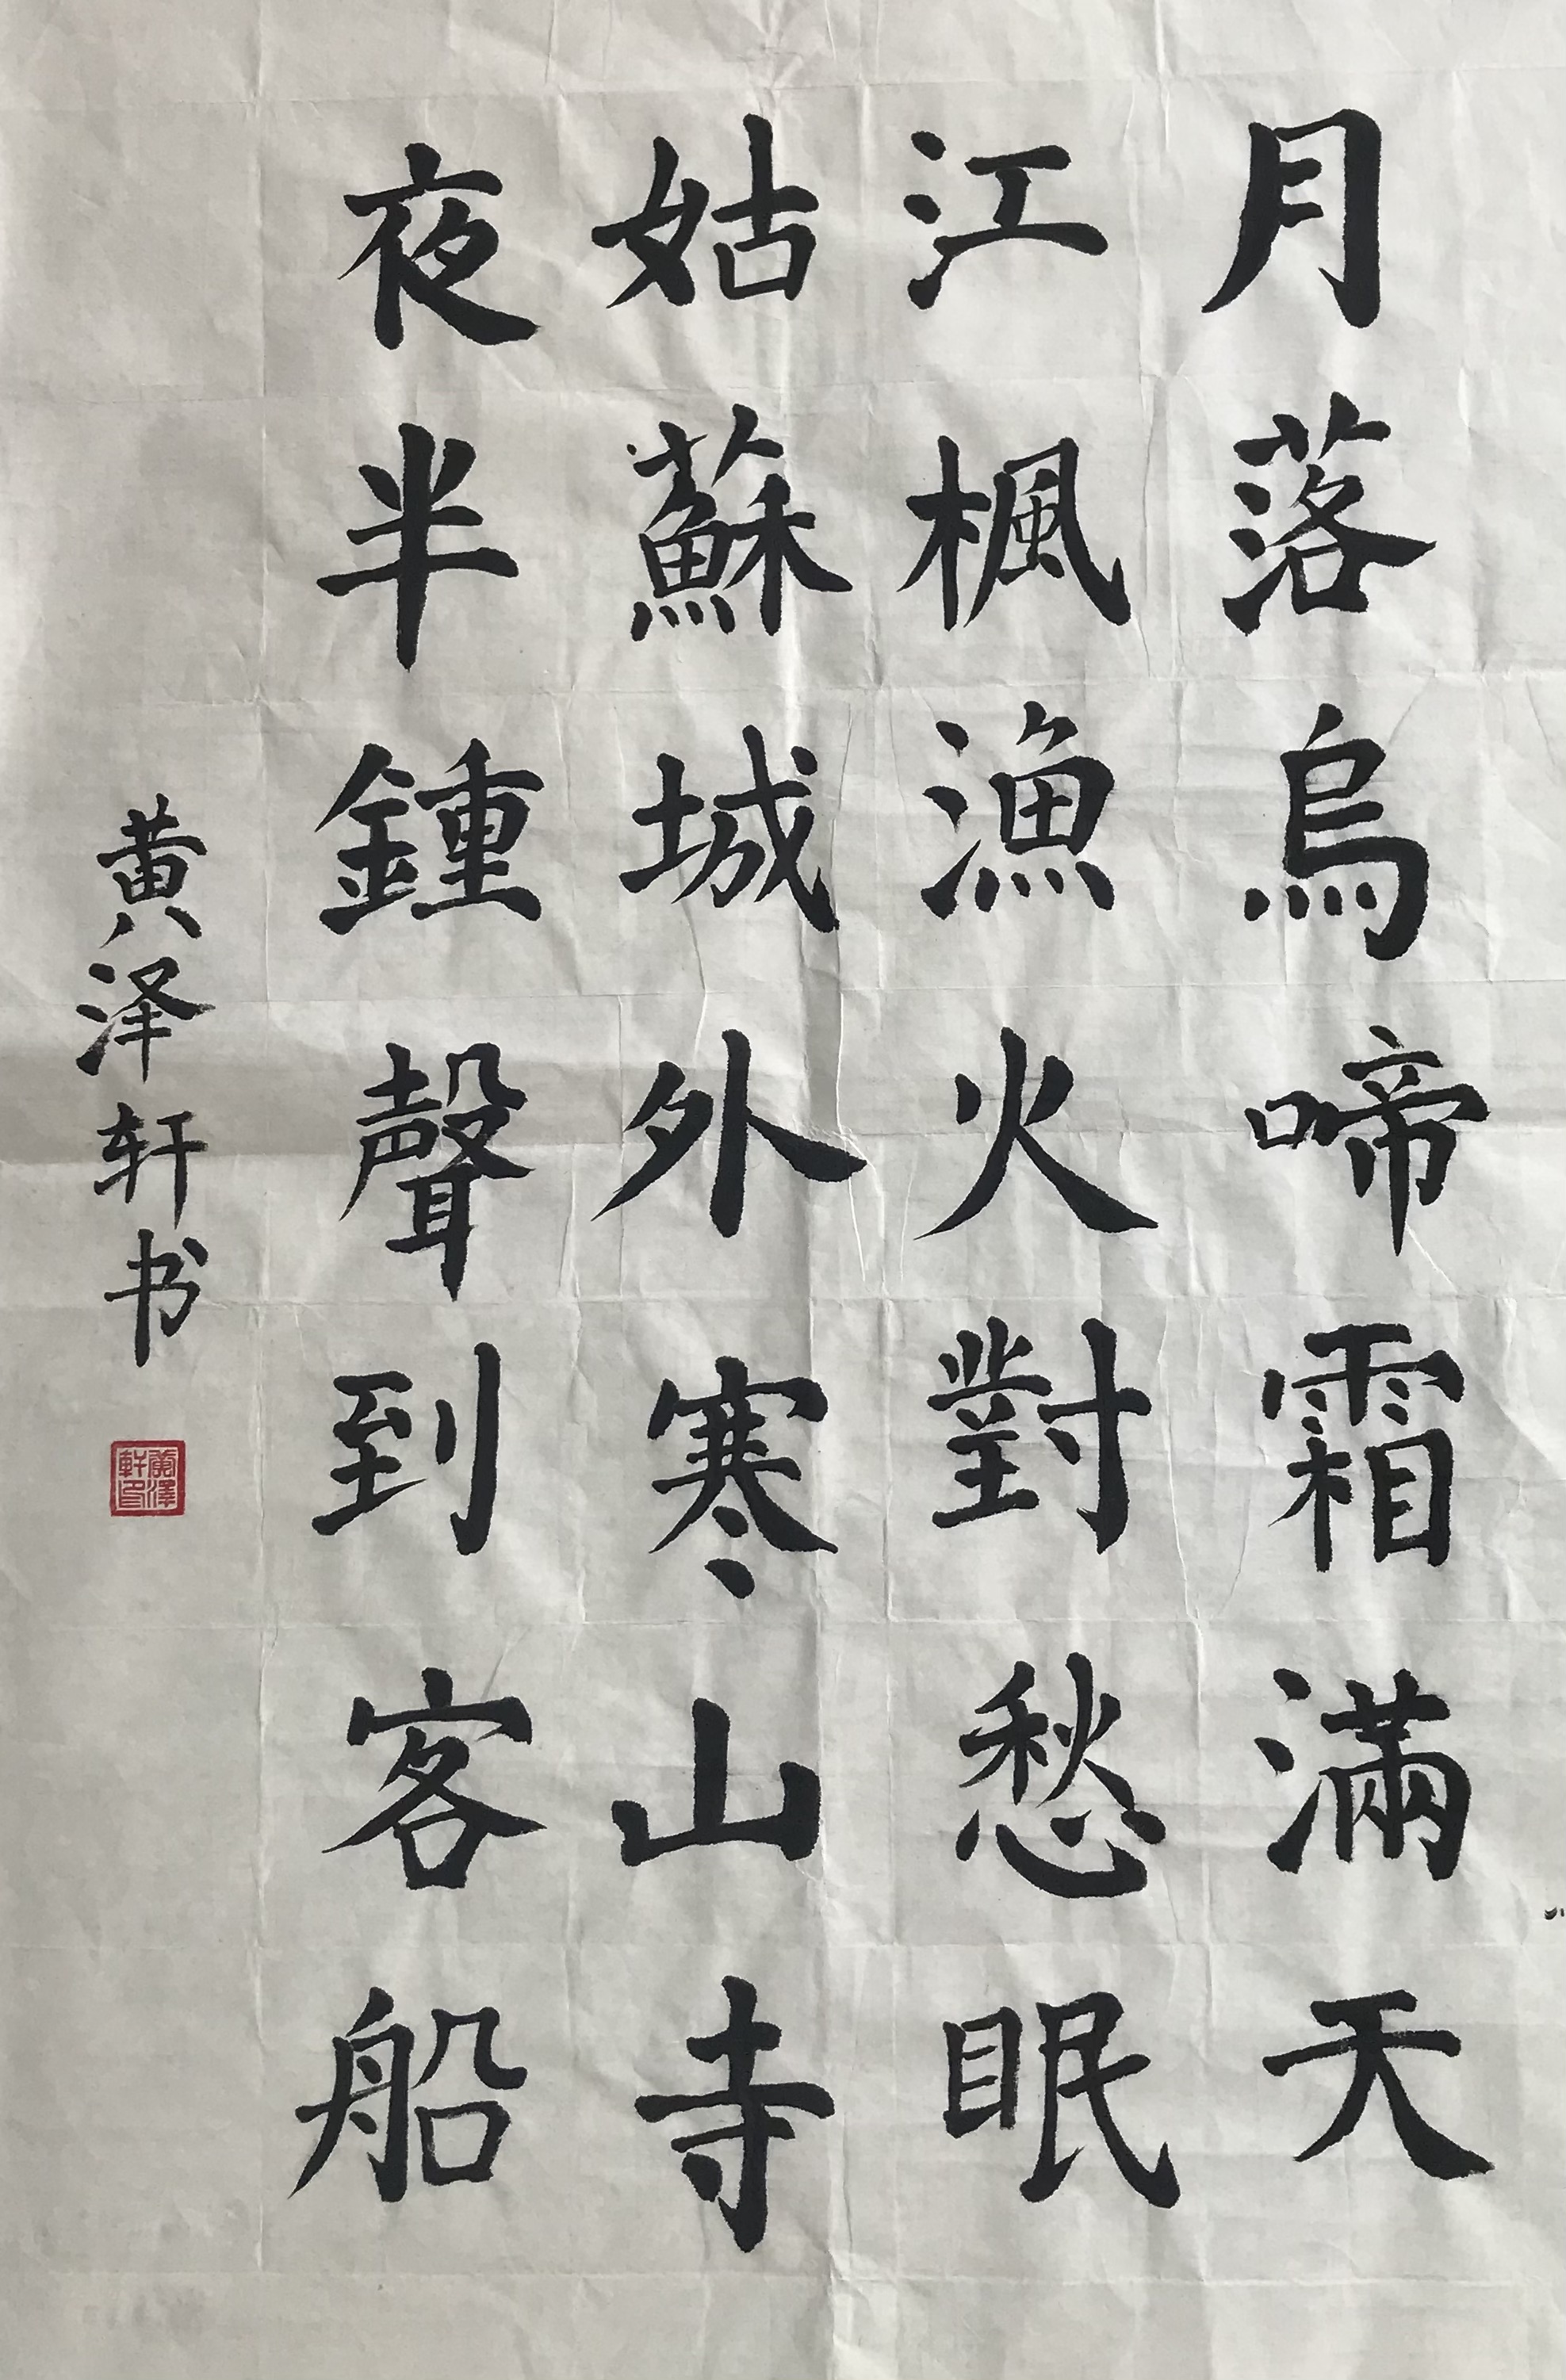 月落烏啼霜滿天
江楓漁火對愁眠
姑蘇城外寒山寺
夜半鍾聲到客船
黄泽轩书
黃澤軒印